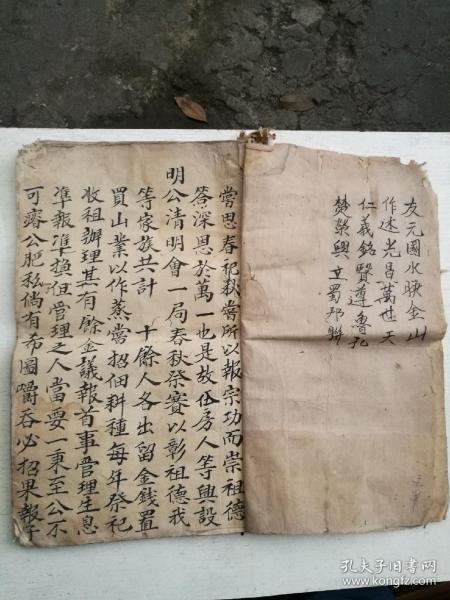 友元國水映金山
作述光昌萬世天
仁義銘賢遵魯孔
楚榮興立蜀邦聯
嘗思春祀秋嘗所以報宗功而崇祖德
答深恩於萬一也是故伍房人等興設
明公清明會一局春秋祭賽以彰祖德我
等家族共計 十餘人各出留金錢置
買山業以作蒸嘗招佃耕種每年祭祀
收租辦理其有餘金議報首事管理生息
準報準損但管理之人當要一秉至公不
可瘠公肥私倘有布圖嚼吞必招果報子
孔夫子旧书网
www.kongfz.com